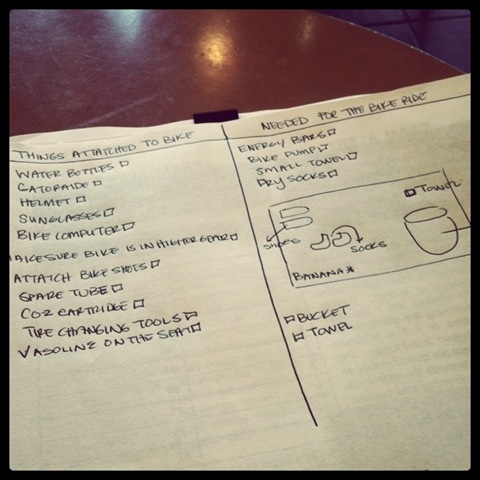 THINGS ATTATCHED TO BIKE
WATER BOTTLES
GATORAIDE
HELMET
SUNGLASSES
BIKE COMPUTER
MAKESURE BIKE IS IN HIGHER GEAR
ATTATCH BIKE SHOES
SPARE TUBE
CO2 CARTRIDGE
TIRE CHANGING TOOLS
VASOLINE ON THE SEAT
NEEDED FOR THE BIKE RIDE
ENERGY BARS
BIKE PUMP
SMALL TOWEL
DRY SOCKS
TOWEL
SHOES
SOCKS
BANANA*
BUCKET
TOWEL